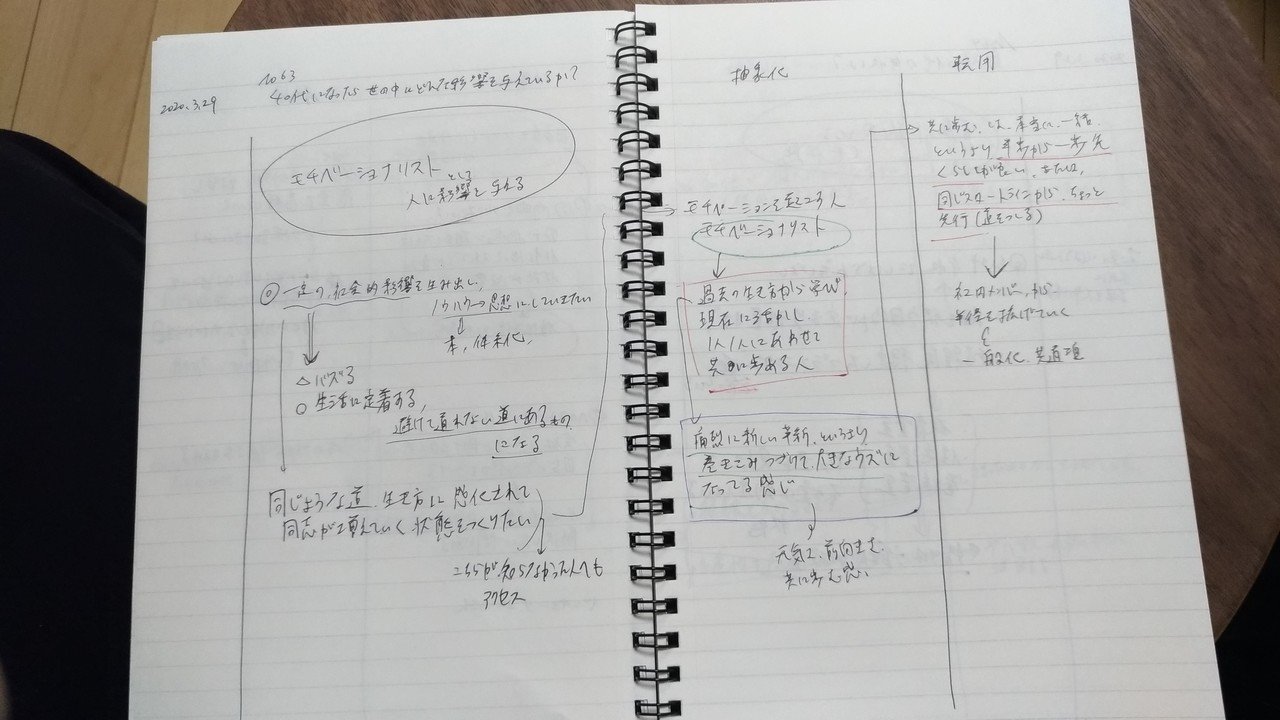 2020.3.29
1063
40代になったら世の中にどんな影響を与えているか?
モチベーショナリスト
という
人に影響を与える
◎ 一定の、社会的影響を生み出し、
ノウハウ→思想にしていきたい
本、体系化。
△ バズる
○ 生活に定着する、
避けて通れない道にあるもの
になる
同じような道、生き方に感化されて
同志が増えていく状態をつくりたい
こちらが知らなかった人へも
アクセス
抽象化
モチベーションを
モチベーショナリスト
過去の生き方から学び、
現在に活かし
1人1人にあわせて
共に歩める人
に新しい革新、というより
つづけて、大きなウズに
なってる感じ
元気で、前向きで、
共に歩む感じ
転用
共に歩む、とは、本当に一緒
というより 半歩から一歩先
くらいが良い、または、
同じスタートラインから、ちょっと
先行(道をつくる)
社内メンバーから
半径を拡げていく
一般化 共通項